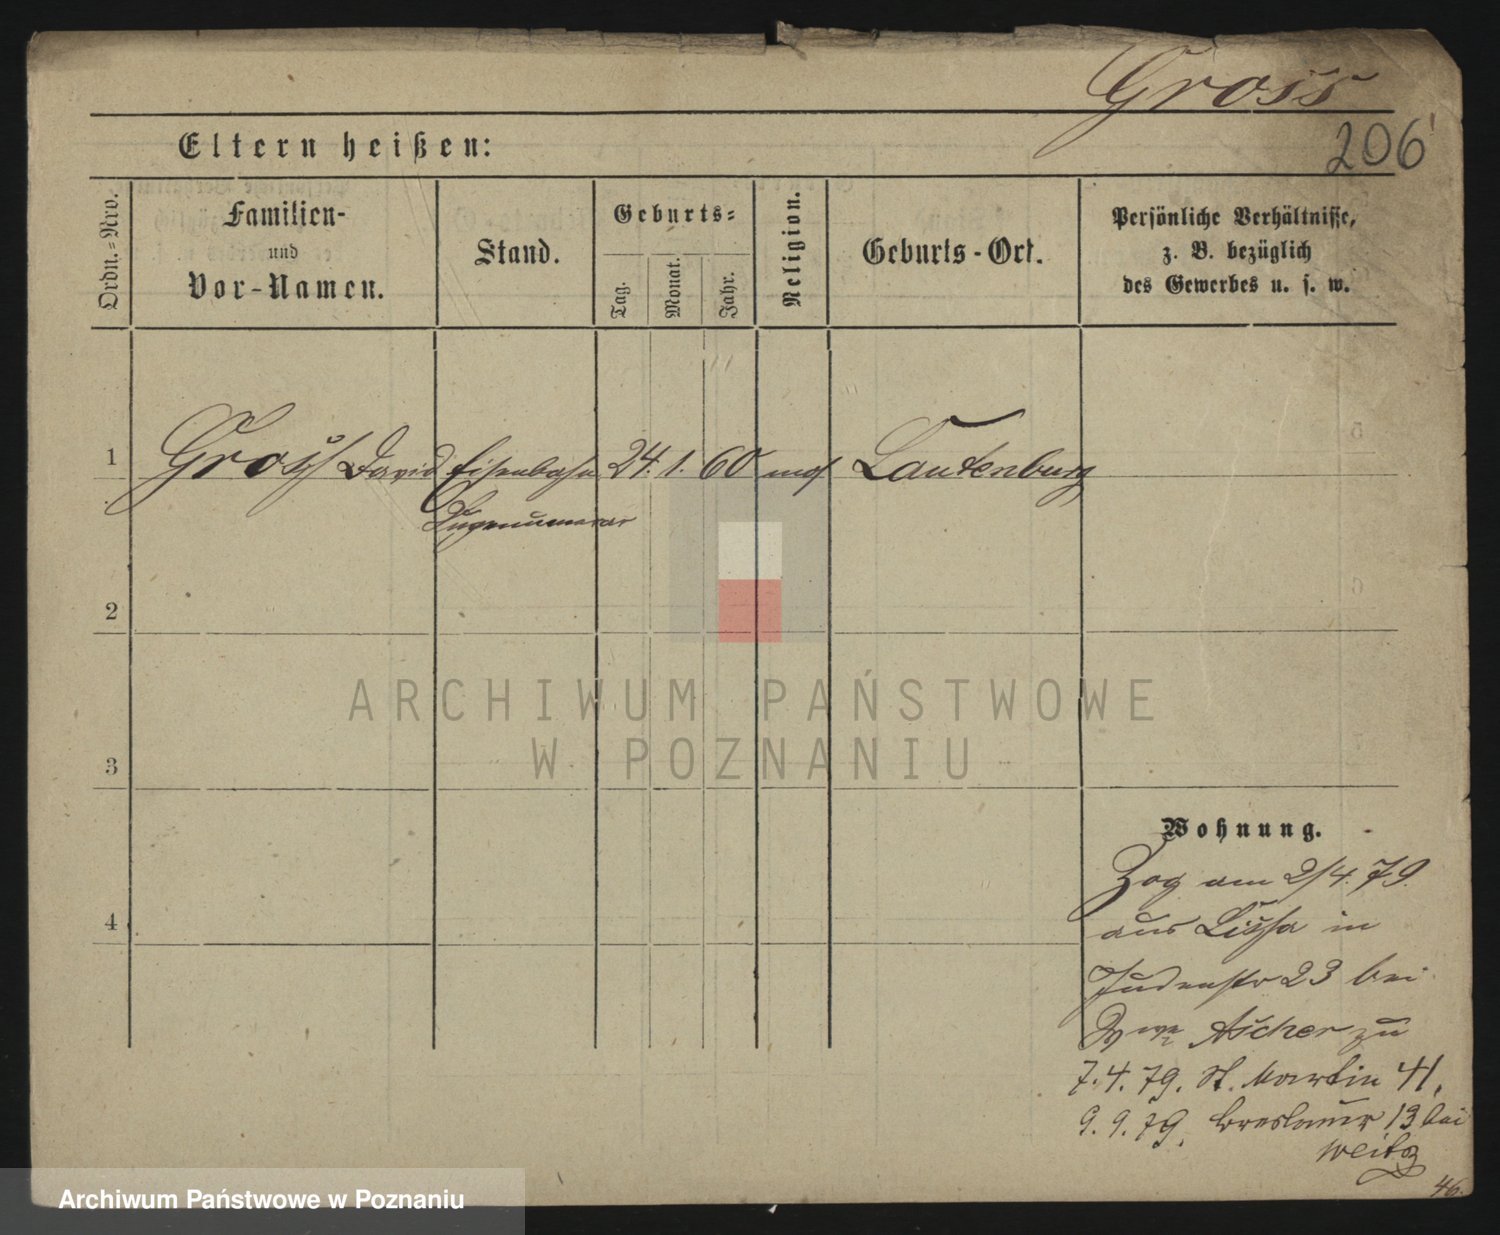 Gross
206
Eltern heißen:
Ordn.=Nro.
Familien-
und
Vor-Namen.
Stand.
Geburts=
Tag.
Monat.
Jahr.
Religion.
Geburts-Ort.
Persönliche Verhältnisse,
z. B. bezüglich
des Gewerbes u. s. w.
1 Gross David Eisenbahn 24. 1. 60 mos Lautenburg
2
ARCHIWUM PAŃSTWOWE
W POZNANIU
3
Wohnung.
Zog am 2/4.79.
4
aus Lissa in
Judenstr 23 bei
Wwe Ascher zu
7.4.79. St. Martin 41.
9.9.79. Breslauer 13 bei
Weitz
46.
Archiwum Państwowe w Poznaniu